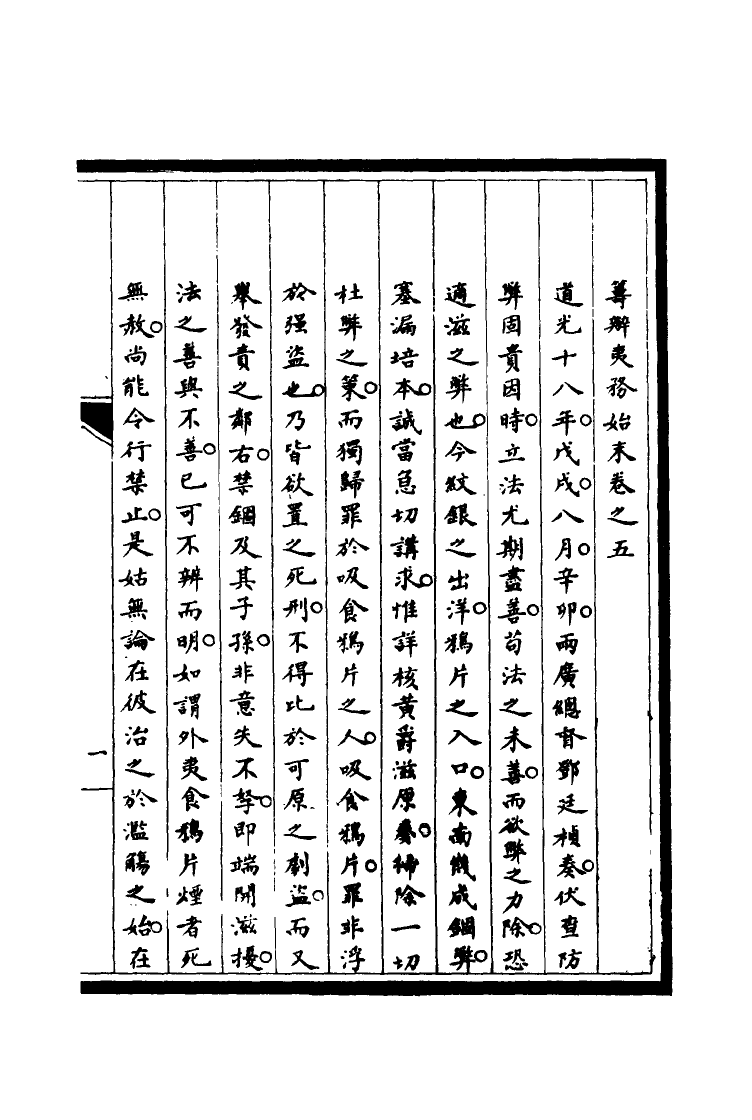 籌辦夷務始末卷之五
道光十八年。戊戌。八月。辛卯。兩廣總督鄧廷楨奏。伏查防
弊固貴因時。立法尤期盡善。苟法之未善。而欲弊之力除。恐
適滋之弊也。今紋銀之出洋。鴉片之入口。東南幾成錮弊。
塞漏培本。誠當急切講求。惟詳核黃爵滋原奏。掃除一切
杜弊之策。而獨歸罪於吸食鴉片之人。吸食鴉片。罪非浮
於强盜也。乃皆欲置之死刑。不得比於可原之劇盜。而又
舉發責之鄰右。禁錮及其子孫。非意失不孥。即端開滋擾。
法之善與不善。已可不辨而明。如謂外夷食鴉片煙者死
無赦。尚能令行禁止。是姑無論在彼治之於濫觴之始。在
一